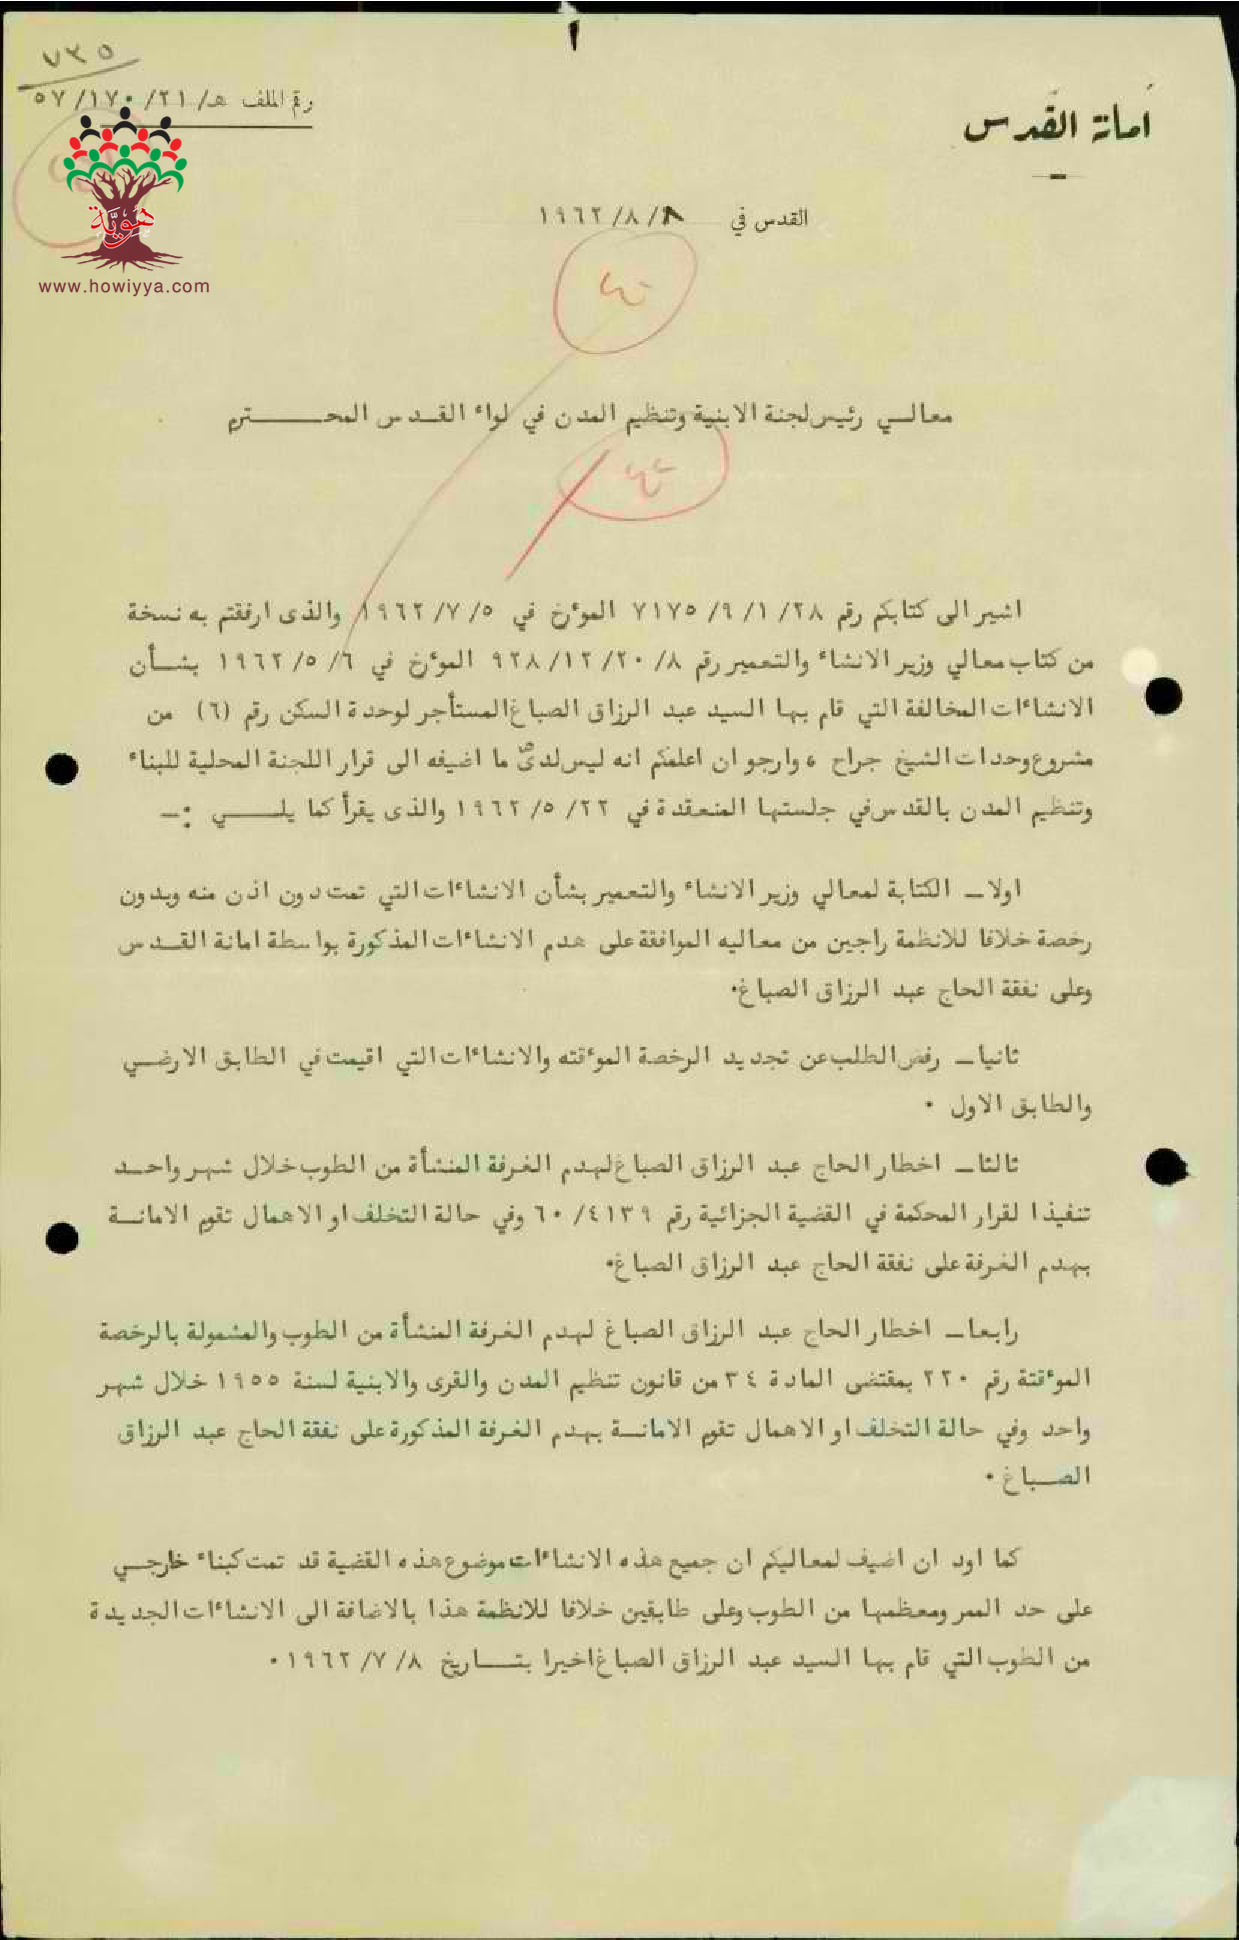 ٧٣٥
رقم الملف هـ/٢١/١٧٠/٥٧
امانة القدس
هوية
www.howiyya.com
القدس في ٨/٨/١٩٦٢
معالي رئيس لجنة الابنية وتنظيم المدن في لواء القدس المحترم
اشير الى كتابكم رقم ٢٨/١/٩/٧١٧٥ المؤرخ في ٥/٧/١٩٦٢ والذى ارفقتم به نسخة
من كتاب معالي وزير الانشاء والتعمير رقم ٨/٢٠/١٢/٩٢٨ المؤرخ في ٦/٥/١٩٦٢ بشأن
الانشاءات المخالفة التي قام بها السيد عبد الرزاق الصباغ المستأجر لوحدة السكن رقم (٦) من
مشروع وحدات الشيخ جراح ، وارجو ان اعلمكم انه ليس لدى ما اضيفه الى قرار اللجنة المحلية للبناء
وتنظيم المدن بالقدس في جلستها المنعقدة في ٢٢/٥/١٩٦٢ والذى يقرأ كما يلي :-
اولا - الكتابة لمعالي وزير الانشاء والتعمير بشأن الانشاءات التي تمت دون اذن منه وبدون
رخصة خلافا للانظمة راجين من معاليه الموافقة على هدم الانشاءات المذكورة بواسطة امانة القدس
وعلى نفقة الحاج عبد الرزاق الصباغ.
ثانيا - رفض الطلب عن تجديد الرخصة المؤقته والانشاءات التي اقيمت في الطابق الارضي
والطابق الاول .
ثالثا - اخطار الحاج عبد الرزاق الصباغ لهدم الغرفة المنشأة من الطوب خلال شهر واحد
تنفيذا لقرار المحكمة في القضية الجزائية رقم ٤١٣٩/٦٠ وفي حالة التخلف او الاهمال تقوم الامانة
بهدم الغرفة على نفقة الحاج عبد الرزاق الصباغ.
رابعا - اخطار الحاج عبد الرزاق الصباغ لهدم الغرفة المنشأة من الطوب والمشمولة بالرخصة
المؤقتة رقم ٢٢٠ بمقتضى المادة ٣٤ من قانون تنظيم المدن والقرى والابنية لسنة ١٩٥٥ خلال شهر
واحد وفي حالة التخلف او الاهمال تقوم الامانة بهدم الغرفة المذكورة على نفقة الحاج عبد الرزاق
الصباغ .
كما اود ان اضيف لمعاليكم ان جميع هذه الانشاءات موضوع هذه القضية قد تمت كبناء خارجي
على حد الممر ومعظمها من الطوب وعلى طابقين خلافا للانظمة هذا بالاضافة الى الانشاءات الجديدة
من الطوب التي قام بها السيد عبد الرزاق الصباغ اخيرا بتاريخ ٨/٧/١٩٦٢ .